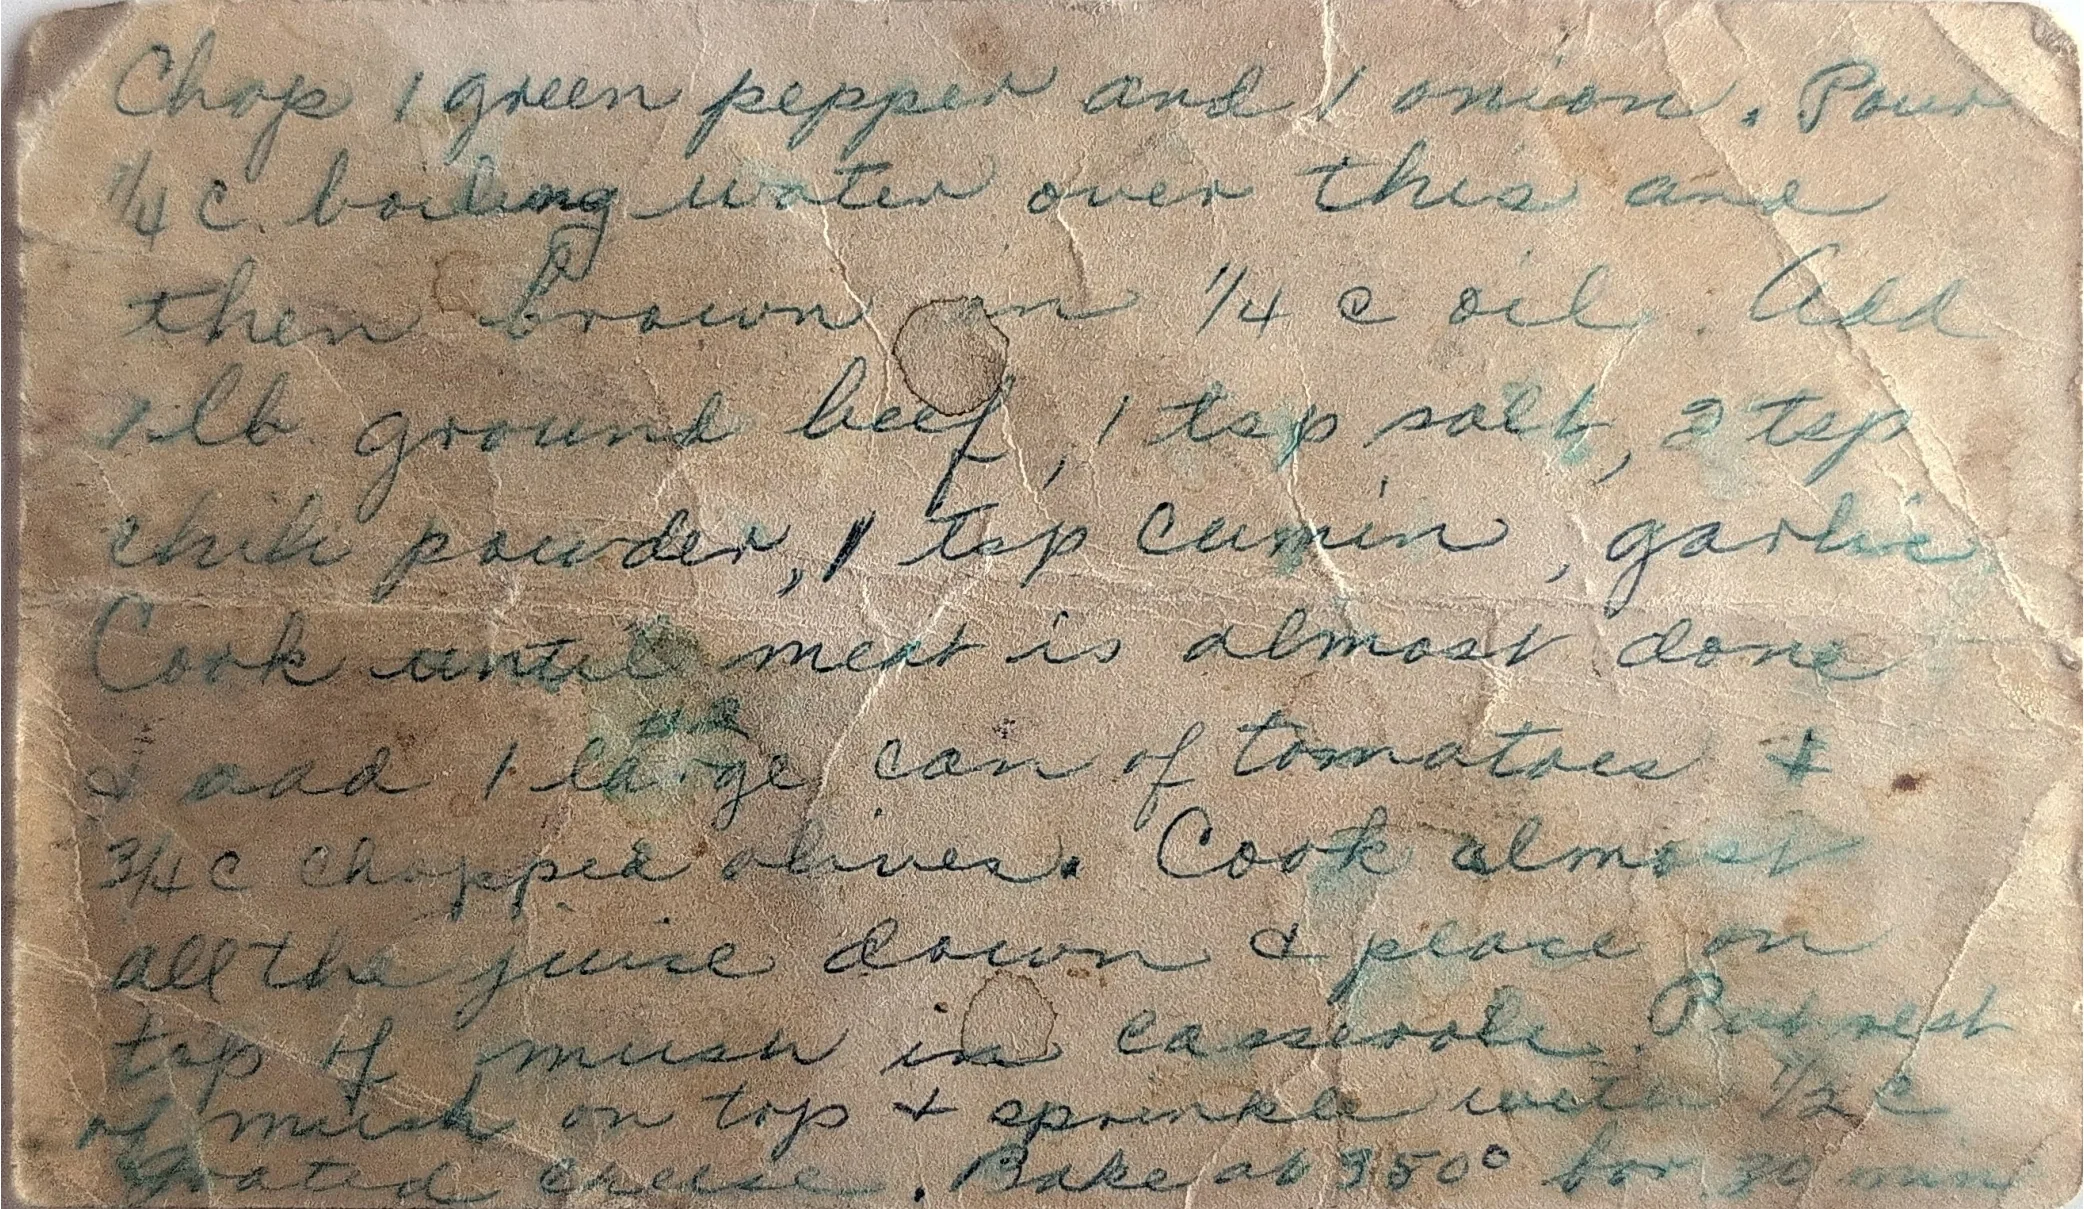 Chop 1 green pepper and 1 onion. Pour
1/4 c. boiling water over this and
then brown in 1/4 c oil. Add
1 lb. ground beef, 1 tsp salt, 2 tsp
chili powder, 1 tsp cumin, garlic
Cook until meat is almost done
& add 1 large can of tomatoes &
3/4 c chopped olives. Cook almost
all the juice down & place on
top of mush in casserole. Put rest
of mush on top & sprinkle with 1/2 c
grated cheese. Bake at 350° for 30 min